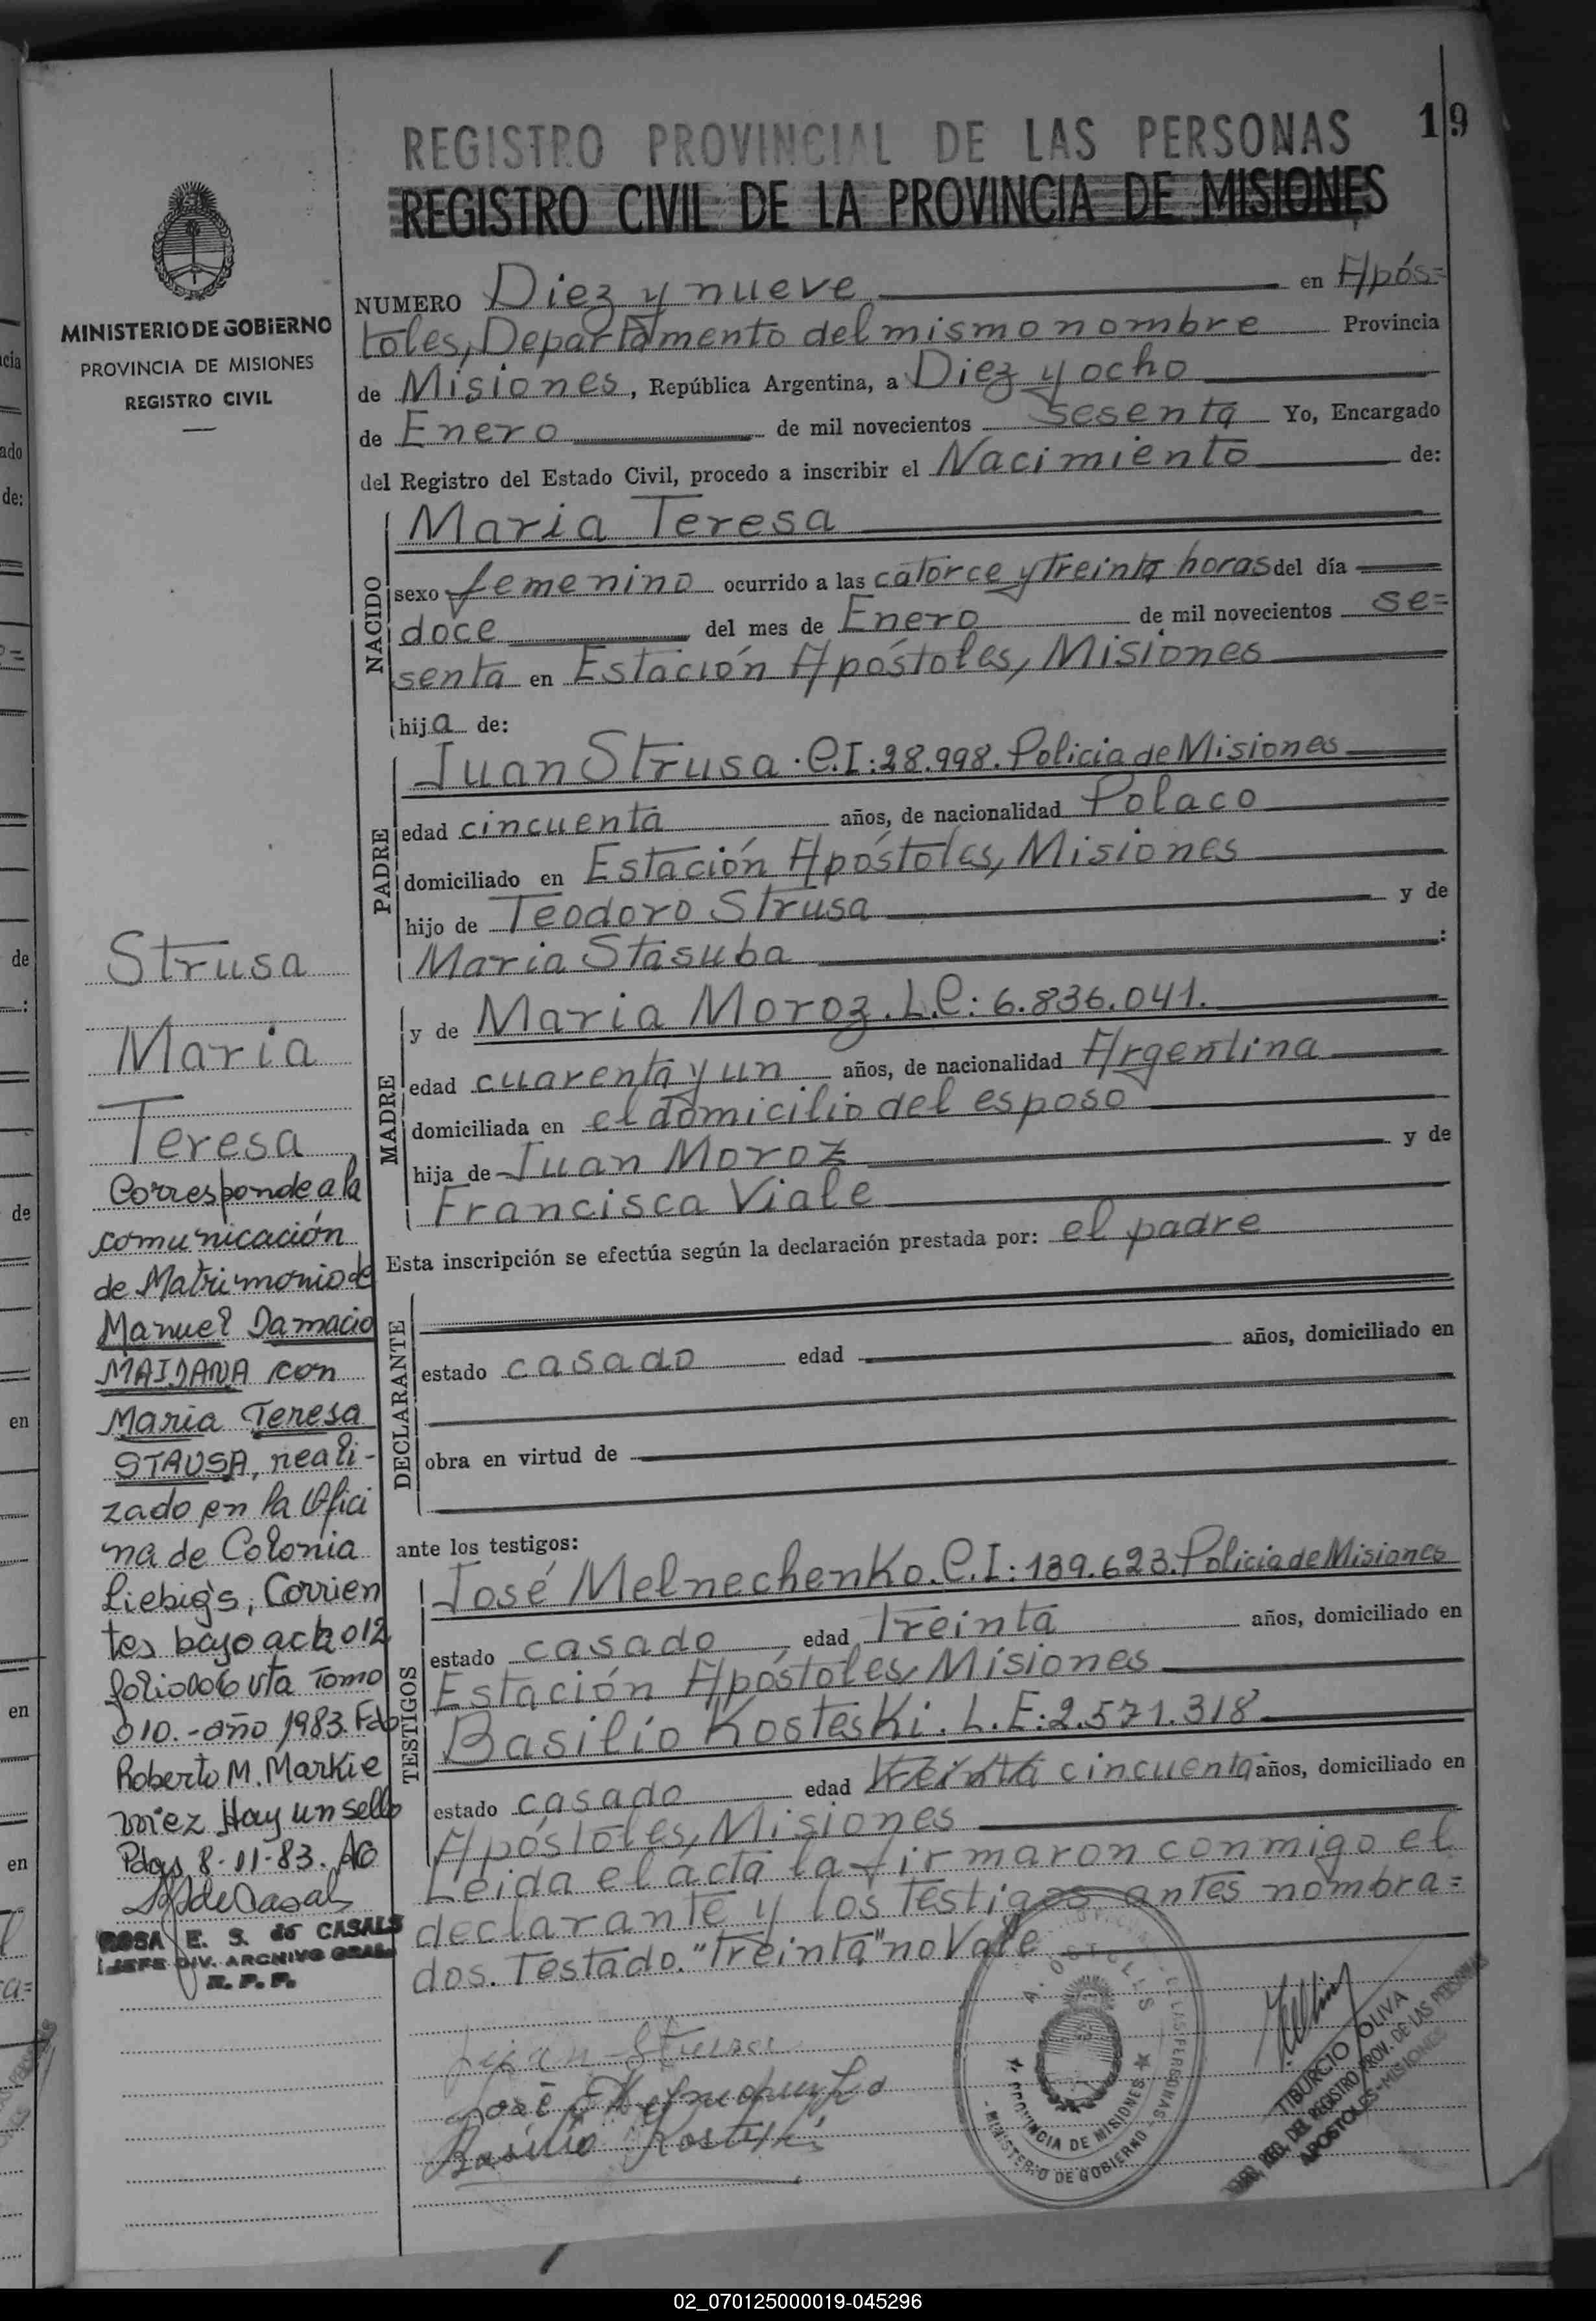 19
REGISTRO PROVINCIAL DE LAS PERSONAS
REGISTRO CIVIL DE LA PROVINCIA DE MISIONES
MINISTERIO DE GOBIERNO
PROVINCIA DE MISIONES
REGISTRO CIVIL
NUMERO Diez y nueve en Após=
toles, Departamento del mismo nombre Provincia
de Misiones, República Argentina, a Diez y ocho
de Enero de mil novecientos sesenta Yo, Encargado
del Registro del Estado Civil, procedo a inscribir el Nacimiento de:
NACIDO
Maria Teresa
sexo femenino ocurrido a las catorce y treinta horas del día
doce del mes de Enero de mil novecientos se=
senta en Estación Apóstoles, Misiones
hija de:
PADRE
Juan Strusa. C.I:28.998. Policia de Misiones
edad cincuenta años, de nacionalidad Polaco
domiciliado en Estación Apóstoles, Misiones
hijo de Teodoro Strusa y de
Maria Stasuba :
MADRE
y de Maria Moroz. L.C: 6.836.041.
edad cuarenta y un años, de nacionalidad Argentina
domiciliada en el domicilio del esposo
hija de Juan Moroz y de
Francisca Viale
Esta inscripción se efectúa según la declaración prestada por: el padre
DECLARANTE
estado casado edad años, domiciliado en
obra en virtud de
ante los testigos:
TESTIGOS
José Melnechenko. C.I: 139.623. Policia de Misiones
estado casado edad Treinta años, domiciliado en
Estación Apóstoles, Misiones
Basilio Kosteski. L.E: 2.571.318
estado casado edad treinta cincuenta años, domiciliado en
Apóstoles, Misiones
Leida el acta la firmaron conmigo el
declarante y los testigos antes nombra=
dos. Testado. "Treinta" no Vale
Juan Strusa
José Melnechenko
Basilio Kosteski
APOSTOLES
PROVINCIA DE MISIONES
MINISTERIO DE GOBIERNO
TIBURCIO OLIVA
ENC. REG. DEL REGISTRO PROV. DE LAS PERSONAS
APOSTOLES - MISIONES
Strusa
Maria
Teresa
Corresponde a la
comunicación
de Matrimonio de
Manuel Damacio
MAIDANA con
Maria Teresa
STAUSA, reali-
zado en la Ofici
na de Colonia
Liebig's, Corrien
tes bajo acta 012
folio 006 vta Tomo
010.- año 1983. Fdo
Roberto M. Markie
wiez Hay un sello
Pdas 8-11-83.
ROSA E. S. de CASALS
JEFE DIV. ARCHIVO GRAL.
R. P. P.
02_070125000019-045296